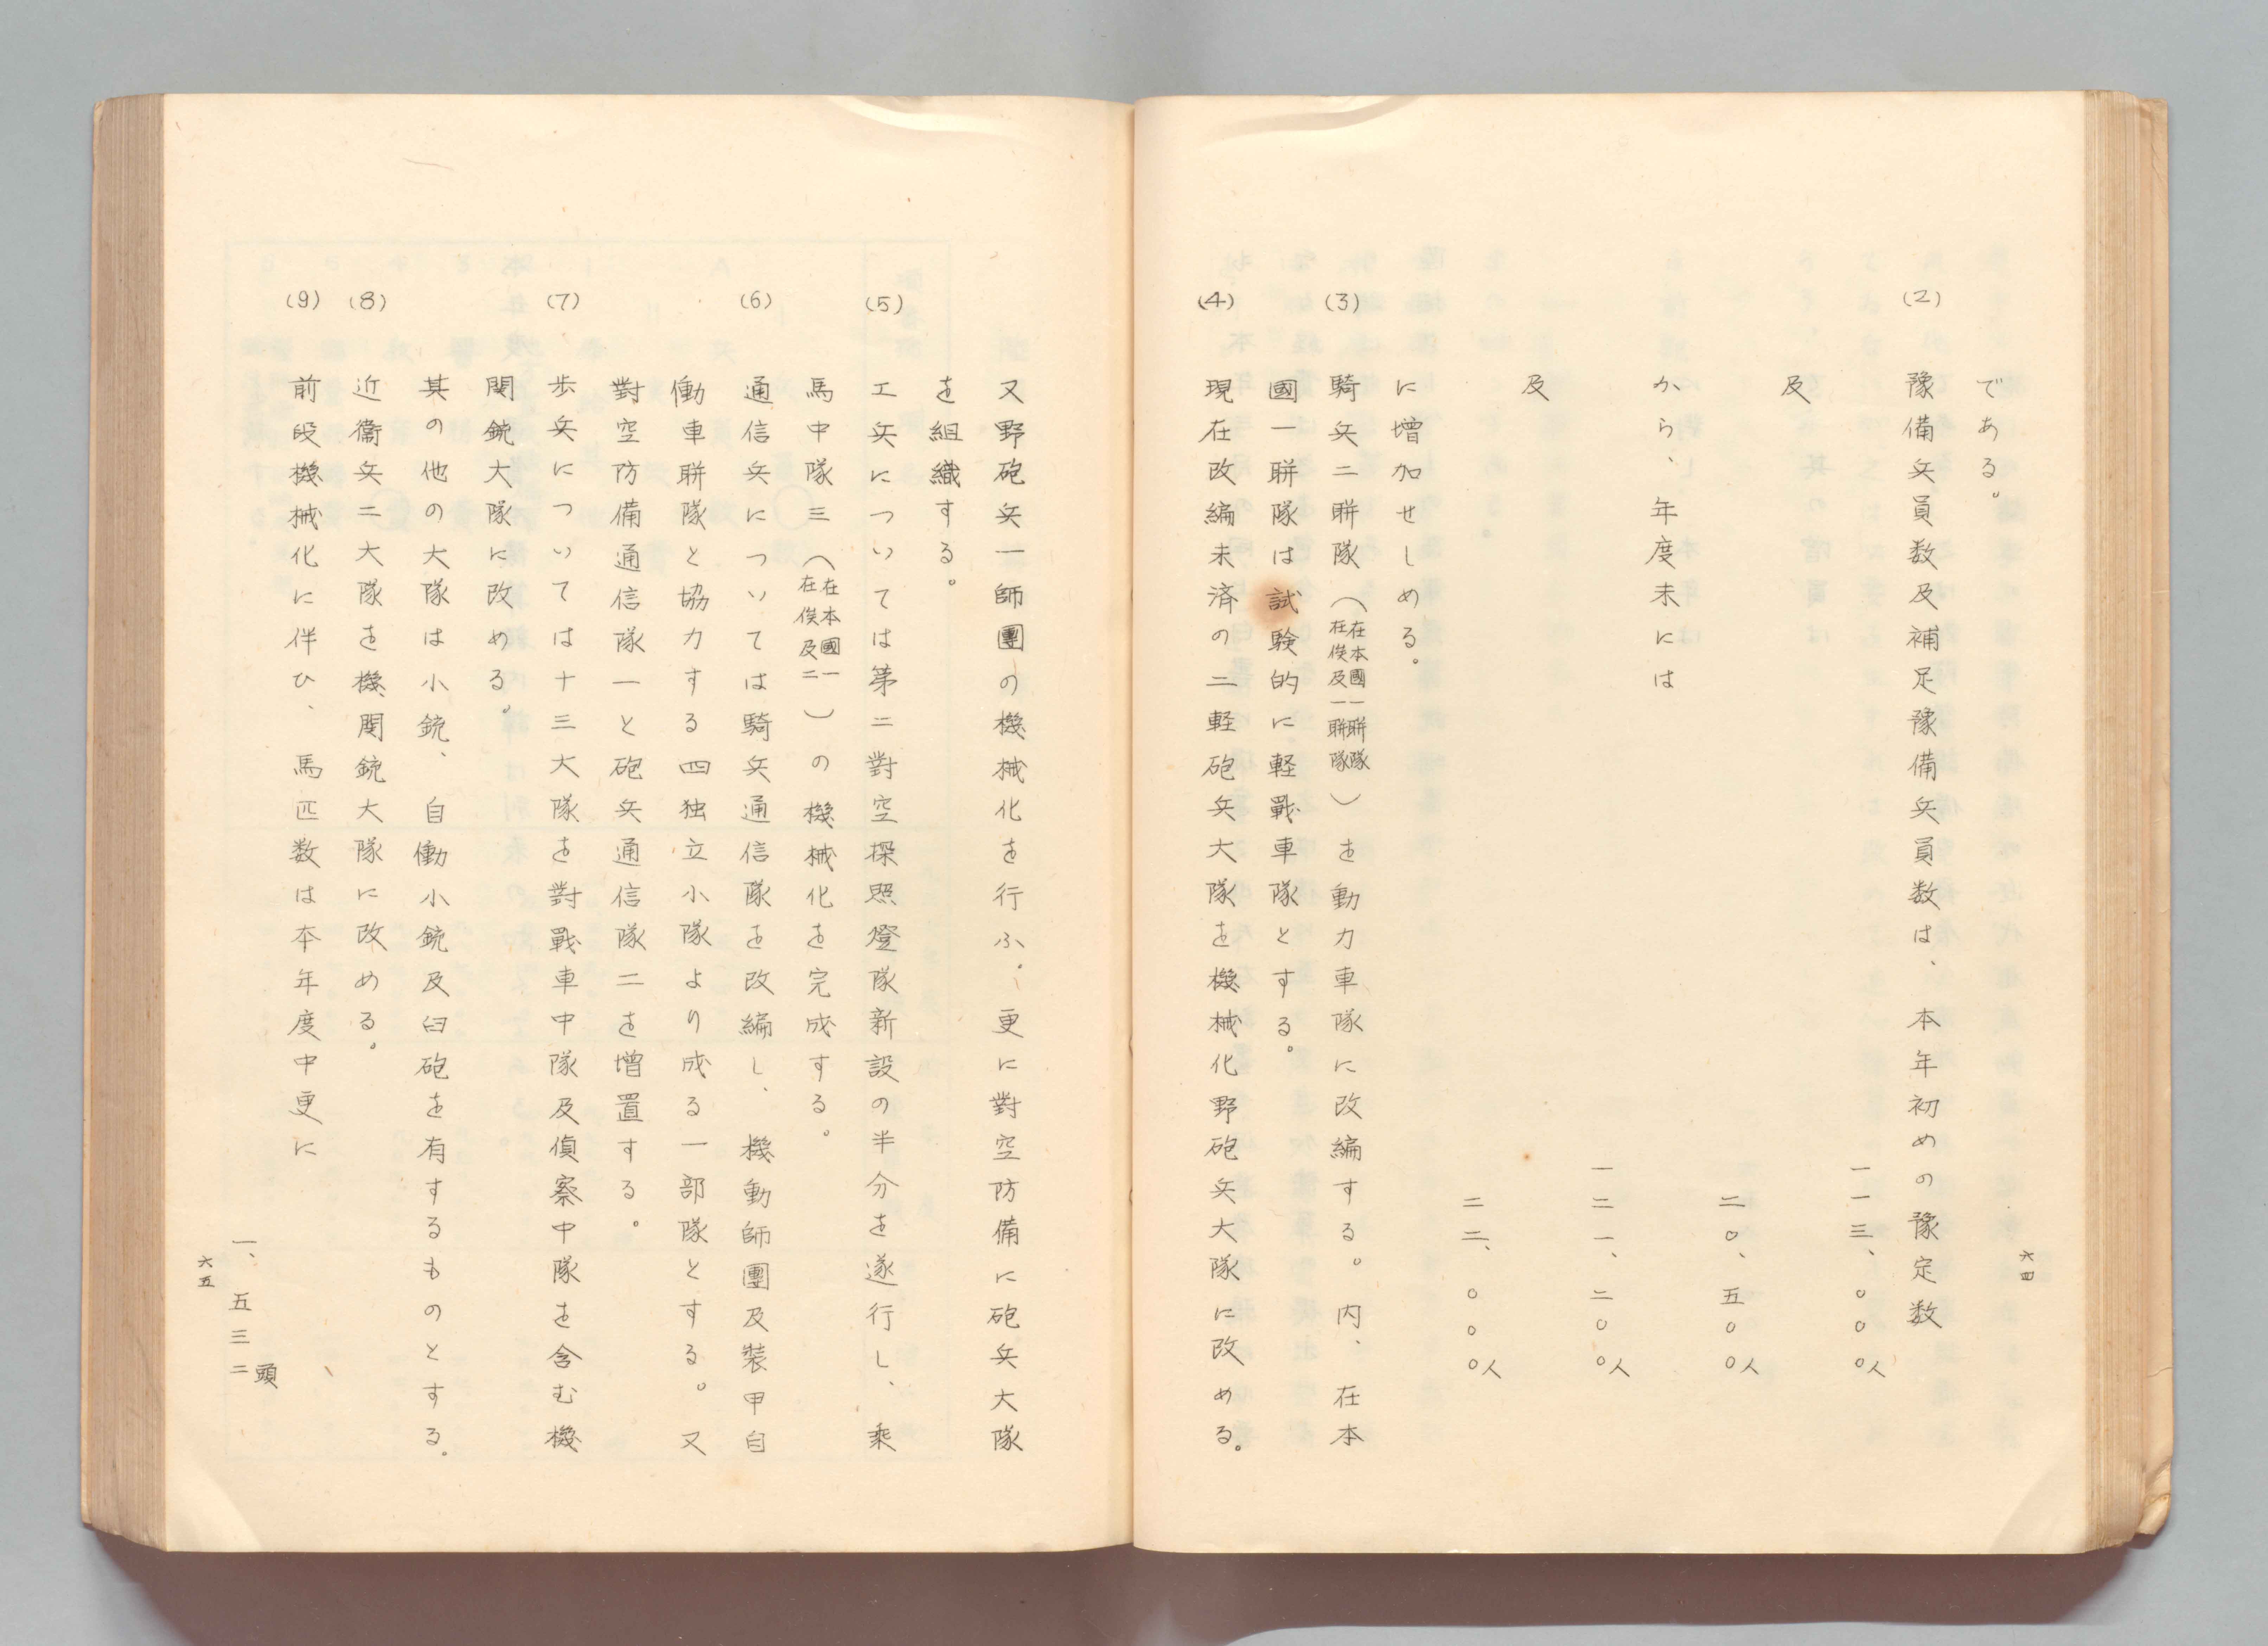 六四
である。
(2) 豫備兵員数及補足豫備兵員数は、本年初めの豫定数
一一三、〇〇〇人
及
二〇、五〇〇人
から、年度末には
一二一、二〇〇人
及
二二、〇〇〇人
に増加せしめる。
(3) 騎兵二聯隊（在本國一聯隊 在俟及一聯隊）を動力車隊に改編する。内、在本
國一聯隊は試験的に軽戰車隊とする。
(4) 現在改編未済の二軽砲兵大隊を機械化野砲兵大隊に改める。
又野砲兵一師團の機械化を行ふ。更に對空防備に砲兵大隊
を組織する。
(5) 工兵については第二對空探照燈隊新設の半分を遂行し、乗
馬中隊三（在本國一 在俟及二）の機械化を完成する。
(6) 通信兵については騎兵通信隊を改編し、機動師團及裝甲自
働車聯隊と協力する四独立小隊より成る一部隊とする。又
對空防備通信隊一と砲兵通信隊二を増置する。
(7) 歩兵については十三大隊を對戰車中隊及偵察中隊を含む機
関銃大隊に改める。
其の他の大隊は小銃、自働小銃及臼砲を有するものとする。
(8) 近衞兵二大隊を機関銃大隊に改める。
(9) 前段機械化に伴ひ、馬匹数は本年度中更に
一、五三二頭
六五